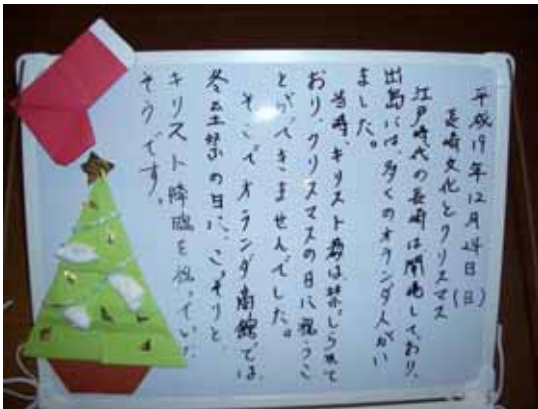 平成19年12月24日(日)
長崎文化とクリスマス
江戸時代の長崎は開港しており、
出島には、多くのオランダ人がい
ました。
当時、キリスト教は禁じられて
おり、クリスマスの日に祝うこ
とができませんでした。
そこでオランダ商館では、
冬至祭の日に、こっそりと
キリスト降臨を祝っていた
そうです。